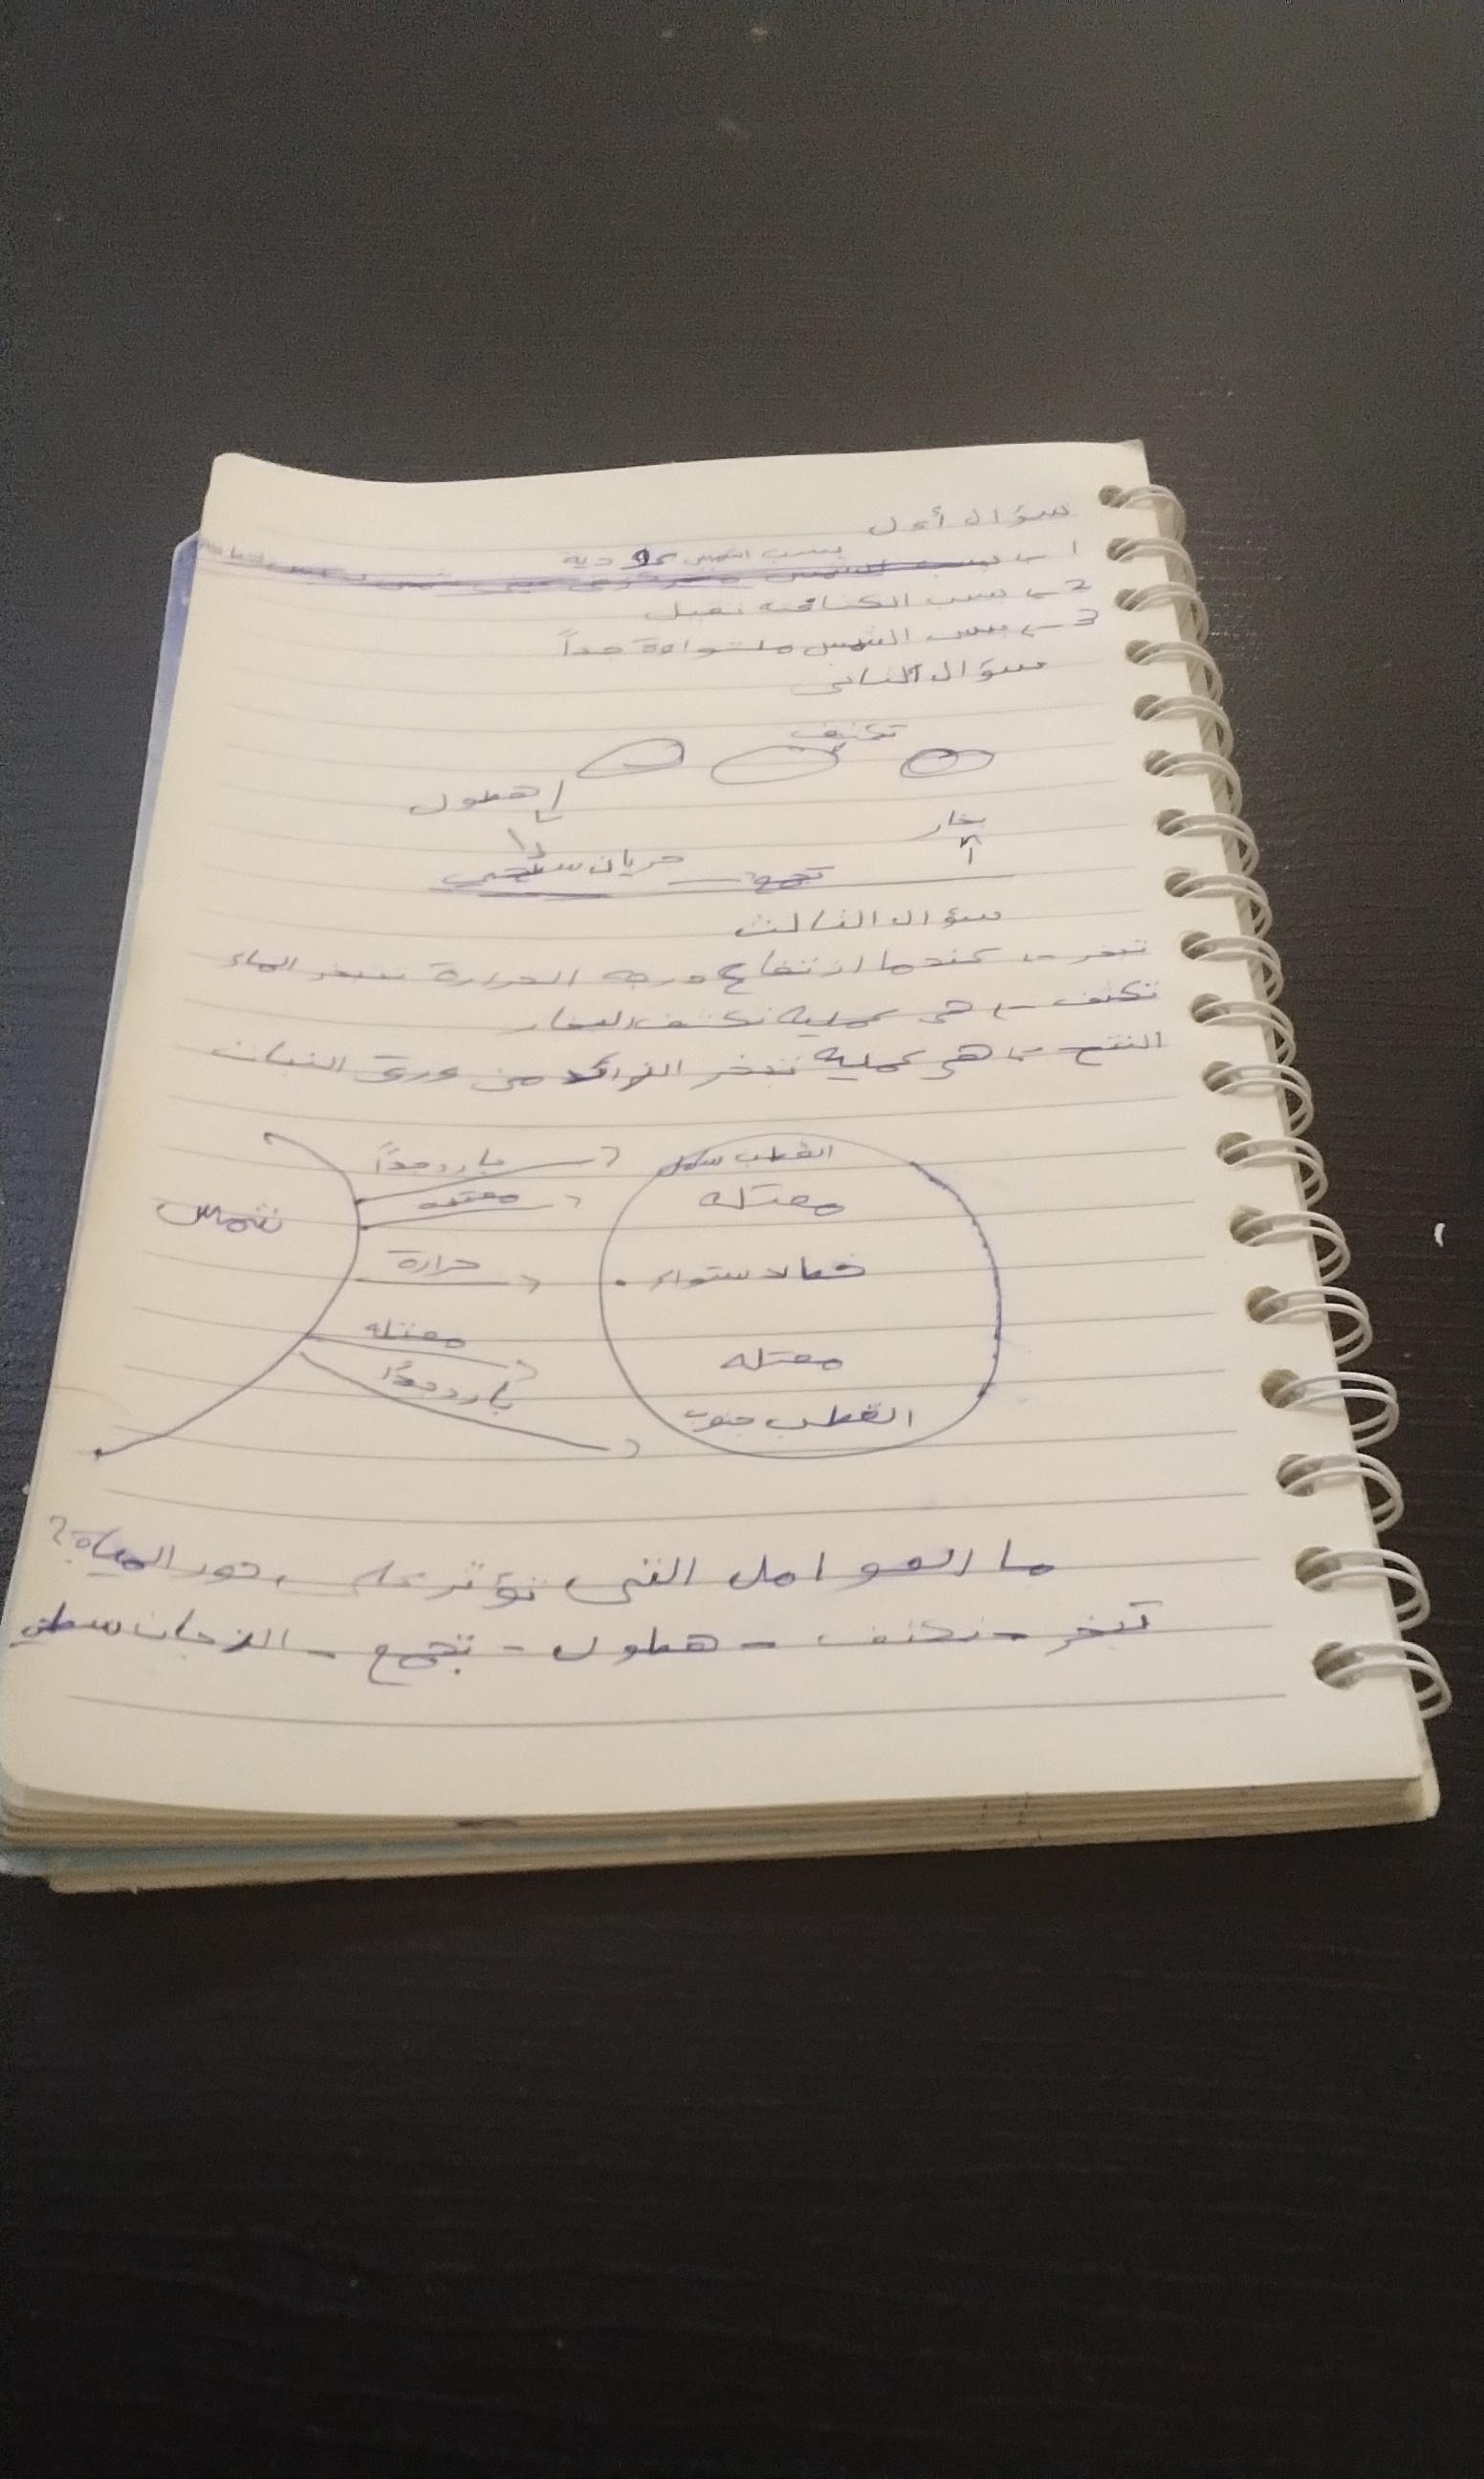 سؤال أول
1 - بسبب الشمس عمودية
2 - بسب الكثافته تقيل
3 - بسب الشمس جداً
سؤال الثاني
تكثيف
هطول
بخار
جريان سطحي
تجمع
سؤال الثالث
تبخر - عندما ارتفاع درجه الحرارة تتبخر الماء
تكثف - هي عملية تكثف البخار
النتح - هي عملية تبخر الزائد من ورق النبات
بارد جداً القطب
معتدله معتدله
شمس
حرارة خط الاستواء
معتدله معتدله
بارد جداً القطب جنوب
ما العوامل التي تؤثر على دور المياة؟
تبخر - تكثف - هطول - تجمع - سطحي